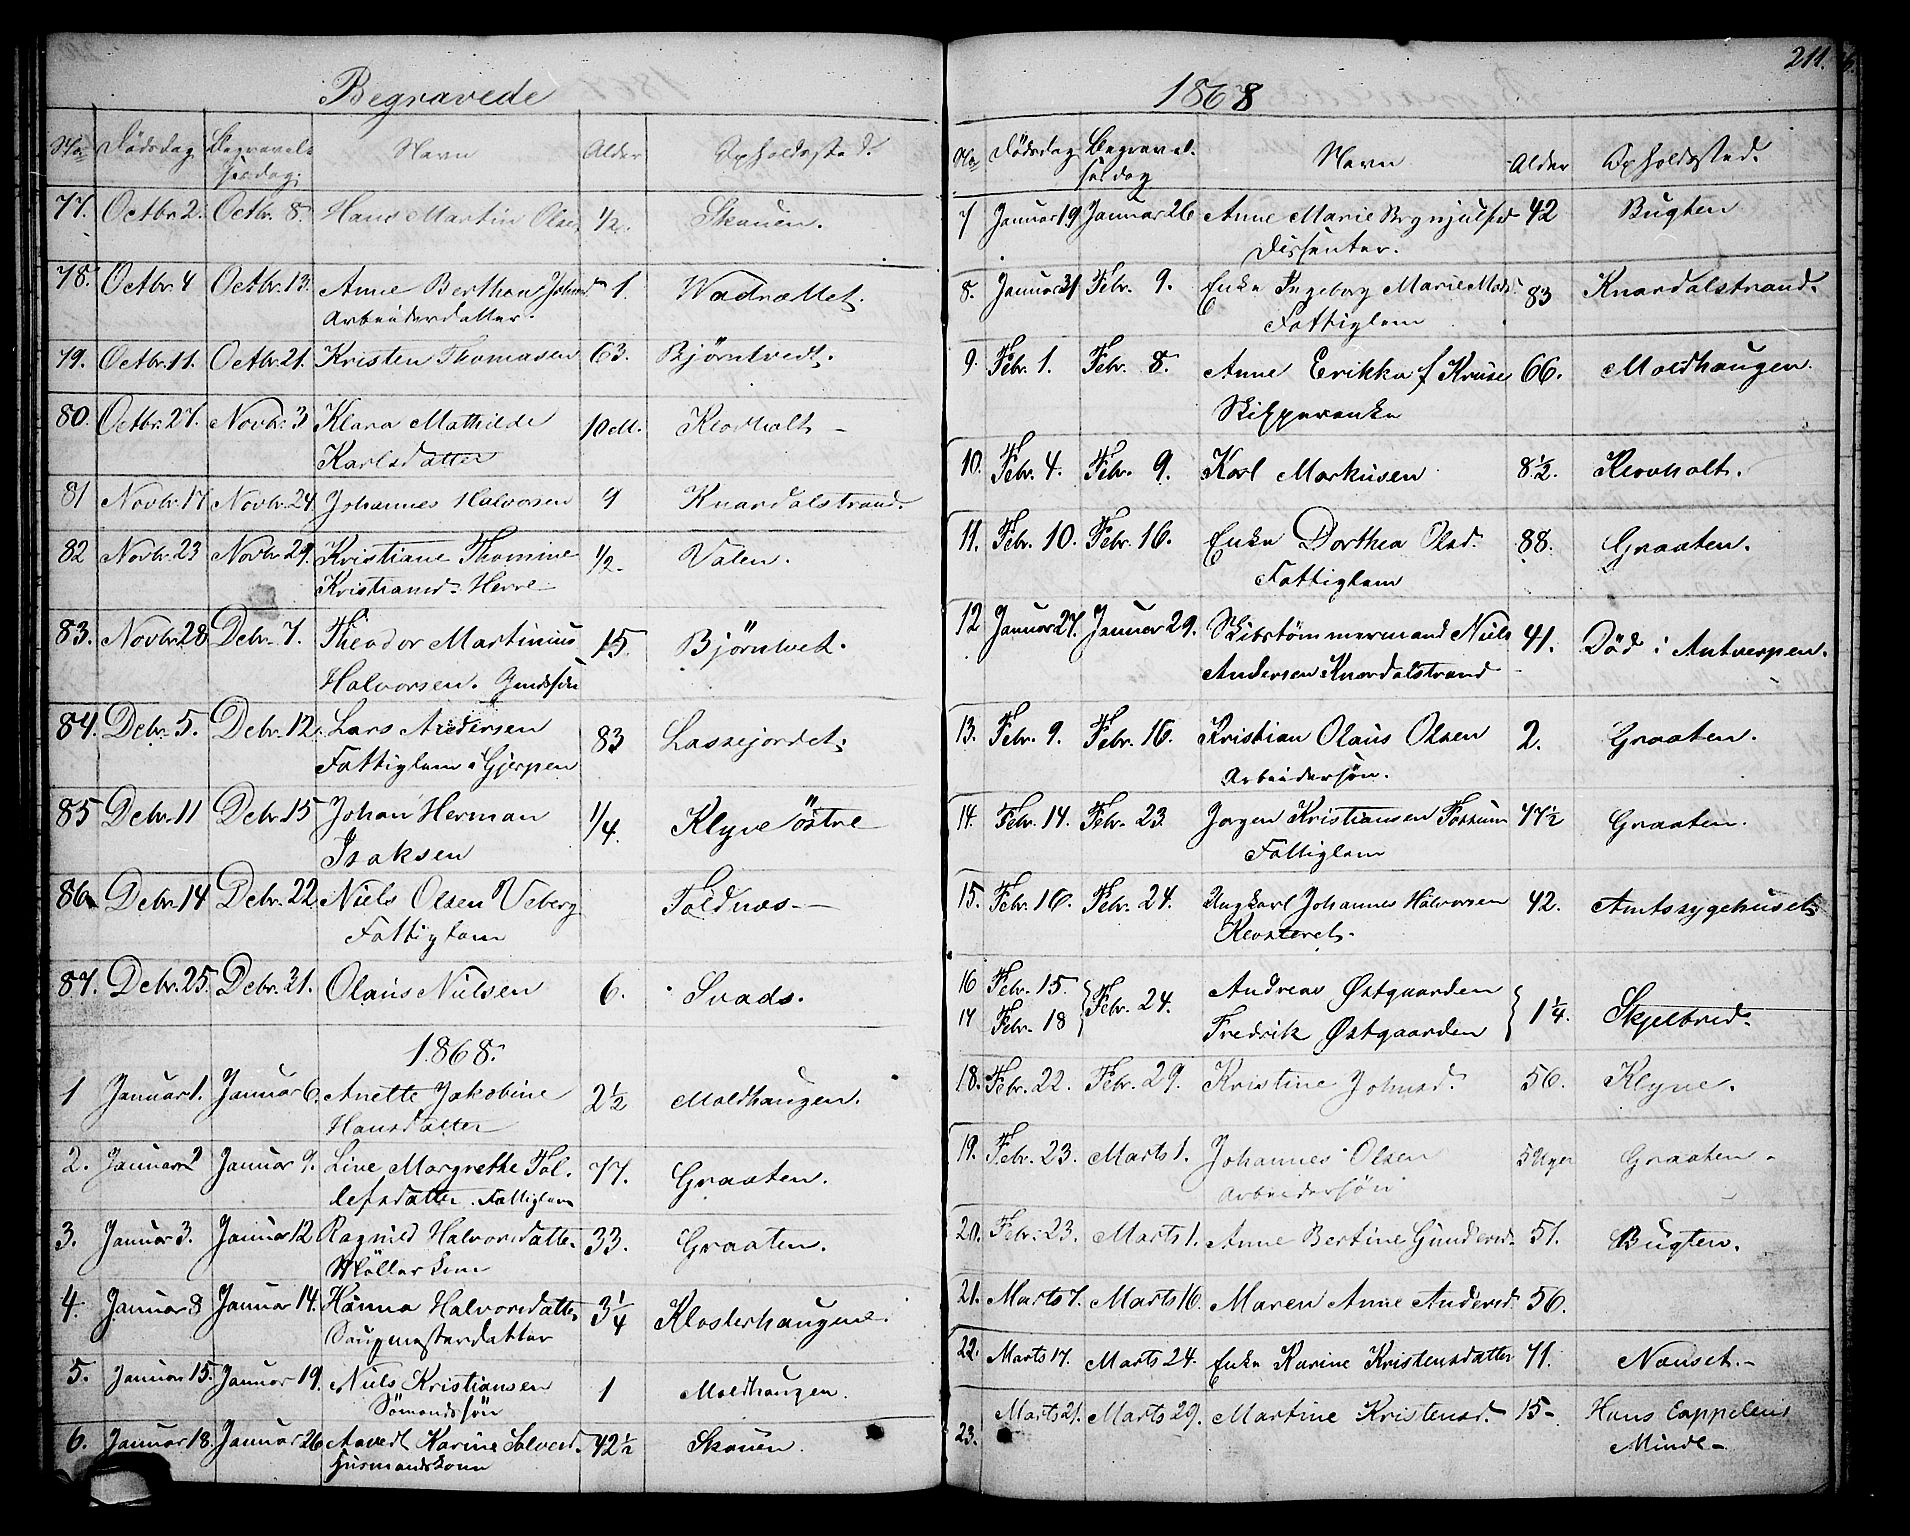 Begravede
No Dödsdag Begravelsesdag. Navn Alder Opholdssted.
77. Octbr. 2. Octbr. 8. Hans Martin Olsen 1/2. Skauen.
78. Octbr. 4 Octbr. 13. Anne Berthea Johnsd 1. Wadrættet.
Arbeiderdatter.
79. Octbr. 11. Octbr. 21. Kristen Thomasen 63. Bjørntvedt.
80. Octbr. 27. Novbr. 3 Klara Mathilde 10 M. Klovholt
Karlsdatter
81 Novbr. 17 Novbr. 24. Johannes Halvorsen 9 Knardalstrand.
82 Novbr. 23 Novbr. 29. Kristiane Thomine 1/2. Valen.
Kristiansd. Herre
83. Novbr. 28 Debr. 7. Theodor Martinius 15 Bjørntvet.
Halvorsen.
84. Debr. 5. Debr. 12. Lars Andersen 83 Lassejordet.
Fattiglem i Gjerpen
85 Debr. 11 Debr. 15 Johan Herman 1/4. Klyve østre
Isaksen
86. Debr. 14 Debr. 22. Niels Olsen Ueberg Foldnæs.
Fattiglem
87. Debr. 25. Debr. 31. Olaus Nielsen 6. Svads.
1868.
1 Januar 1. Januar 6. Anette Jakobine 2 1/2 Moldhaugen.
Hansdatter
2. Januar 2 Januar 9. Line Margrethe Tol- 77. Graaten.
lefsdatter. Fattiglem
3. Januar 3. Januar 12 Ragnild Halvorsdatter 33. Graaten.
Möllerkone
4. Januar 8 Januar 14. Hanna Halvorsdatter 3 1/4 Klosterhaugene.
Saugmesterdatter
5. Januar 15. Januar 19. Niels Kristiansen 1 Moldhaugen.
Sömandssön
6. Januar 18. Januar 26 Karine Solversd. 42 1/2 Skauen.
Husmandskone
1868
211.
No Dödsdag Begravelsesdag Navn Alder Opholdssted.
7 Januar 19 Januar 26 Anne Marie Brynjulfsd 42 Bugten
Dissenter.
8. Januar 31 Febr. 9. Enke Ingeborg Marie Mads 83 Knardalstrand.
Fattiglem
9. Febr. 1. Febr. 8. Anne Erikka f Kruse 66. Moldhaugen.
Skipperenke
10. Febr. 4. Febr. 9. Karl Markusen 8 1/2. Klovholt.
11. Febr. 10. Febr. 16. Enke Dorthea Olsd. 88. Graaten.
Fattiglem
12 Januar 27. Januar 29. Skibstømmermand Niels 41. Död i Antverpen.
Andersen Knardalstrand
13. Febr. 9. Febr. 16. Kristian Olaus Olsen 2. Graaten.
Arbeidersön.
14. Febr. 14. Febr. 23. Jørgen Kristiansen Fossum 47 1/2 Graaten.
Fattiglem
15. Febr. 16. Febr. 24. Ungkarl Johannes Halvorsen 42. Amtssygehuset
Klosteret.
16 Febr. 15. Febr. 24. Andreas Østgaarden 1 1/4. Skjelbred.
17 Febr. 18 Fredrik Østgaarden
18. Febr. 22. Febr. 29. Kristine Johnsd. 56. Klyve.
19. Febr. 23. Marts 1. Johannes Olsen 5 Uger Graaten.
Arbeidersön
20. Febr. 23. Marts 1. Anne Bertine Gundersd. 51. Bugten.
21. Marts 7. Marts 16. Maren Anne Andersd. 56.
22. Marts 17. Marts 24. Enke Karine Kristensdatter 71. Nænset.
23. Marts 21. Marts 29. Martine Kristensd. 15 Hans Cappelens
Minde